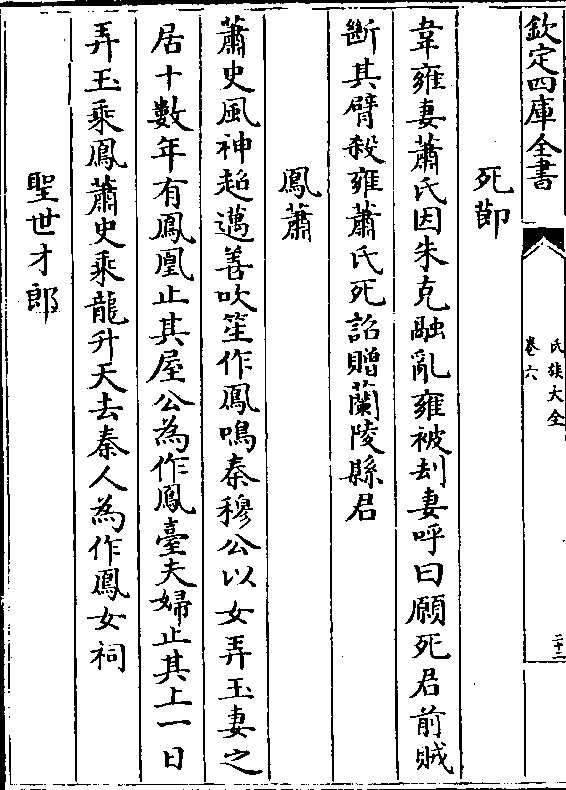 欽定四庫全書
氏族大全
卷六
二十二
死節
韋雍妻蕭氏因朱克融亂雍被刦妻呼曰願死君前賊
斷其臂殺雍蕭氏死詔贈蘭陵縣君
鳳蕭
蕭史風神超邁善吹笙作鳳鳴秦穆公以女弄玉妻之
居十數年有鳳凰止其屋公為作鳳臺夫婦止其上一日
弄玉乘鳳蕭史乘龍升天去秦人為作鳳女祠
聖世才郎